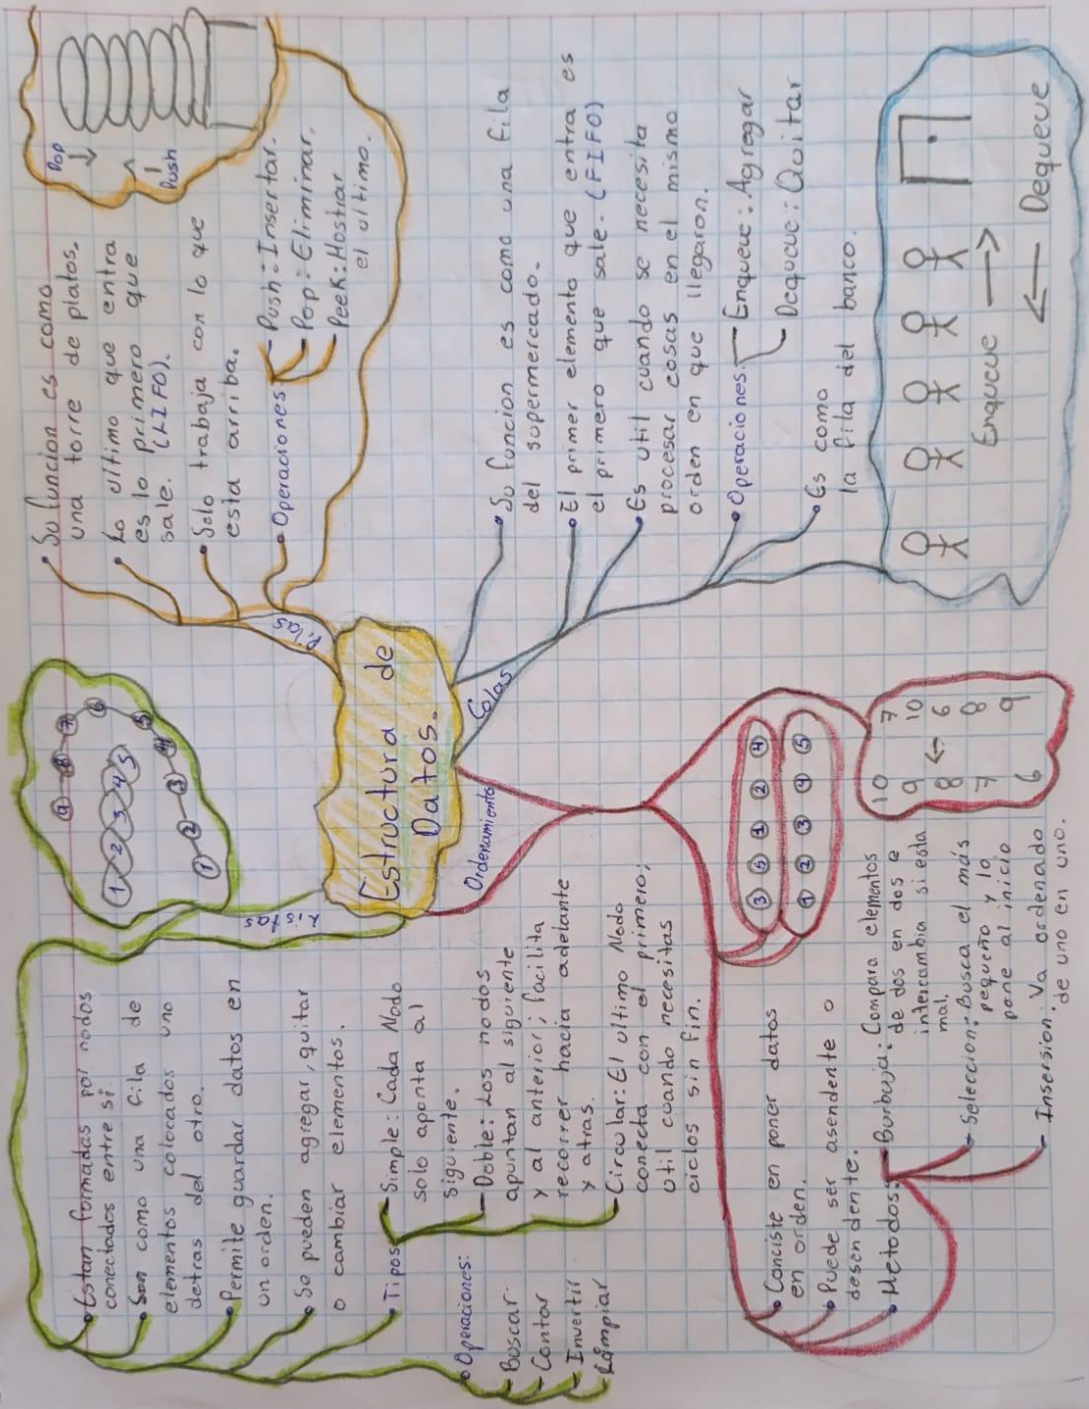 Estructura de
Datos.
Listas
• Estan formadas por nodos
conectados entre si.
• Son como una fila de
elementos colocados uno
detras del otro.
• Permite guardar datos en
un orden.
• Se pueden agregar, quitar
o cambiar elementos.
• Tipos
Simple: Cada Nodo
solo aponta al
siguiente.
Doble: Los nodos
apuntan al siguiente
y al anterior; facilita
recorrer hacia adelante
y atras.
Circular: El ultimo Nodo
conecta con el primero;
util cuando necesitas
ciclos sin fin.
• Operaciones:
Buscar
Contar
Invertir
Limpiar
9 8 7 6 5
1 2 3 4 5
1 2 3 4
Pilas
• Su funcion es como
una torre de platos.
• Lo ultimo que entra
es lo primero que
sale. (LIFO).
• Solo trabaja con lo que
esta arriba.
• Operaciones
Push: Insertar.
Pop: Eliminar.
Peek: Mostrar
el ultimo.
Pop
↓
↑
Push
Colas
• Su funcion es como una fila
del supermercado.
• El primer elemento que entra es
el primero que sale. (FIFO)
• Es util cuando se necesita
procesar cosas en el mismo
orden en que llegaron.
• Operaciones:
Enqueue: Agregar
Dequeue: Quitar
• Es como
la fila del banco.
Enqueue →
← Dequeue
Ordenamientos
• Conciste en poner datos
en orden.
• Puede ser asendente o
desendente.
• Metodos:
Burbuja: Compara elementos
de dos en dos e
intercambia si esta
mal.
Seleccion: Busca el más
pequeño y lo
pone al inicio
Insersion: Va ordenado
de uno en uno.
3 5 1 2 4
1 2 3 4 5
10 7
9 10
8 ← 6
7 8
6 9